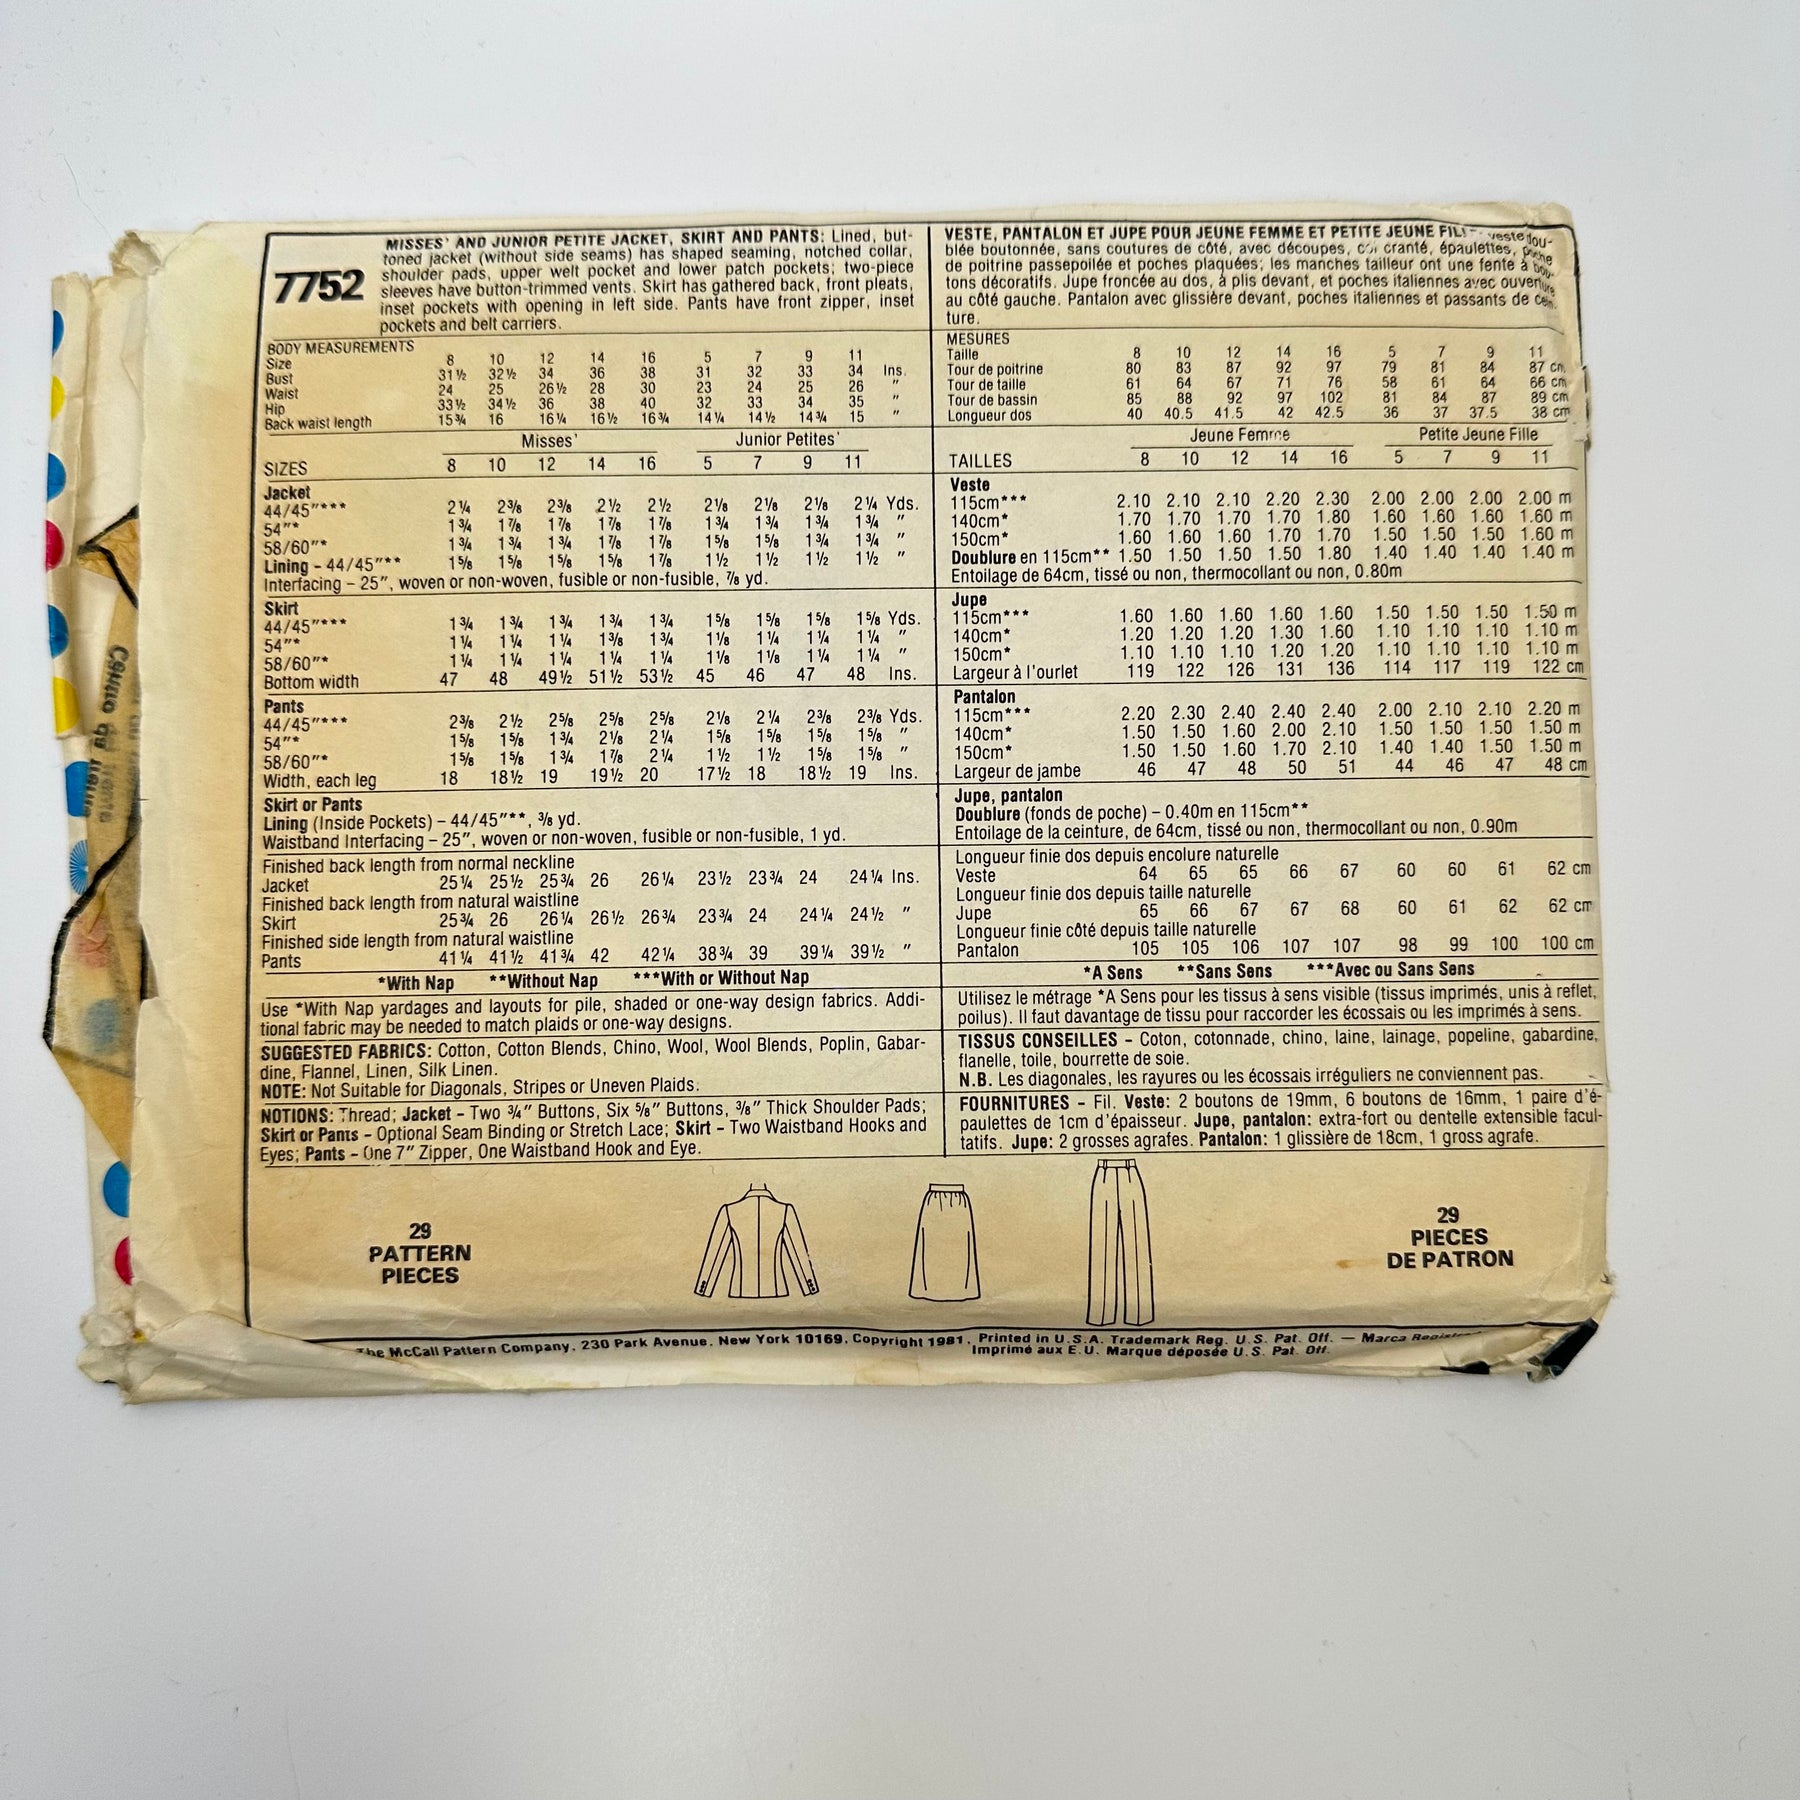 7752
MISSES' AND JUNIOR PETITE JACKET, SKIRT AND PANTS: Lined, but-
toned jacket (without side seams) has shaped seaming, notched collar,
shoulder pads, upper welt pocket and lower patch pockets; two-piece
sleeves have button-trimmed vents. Skirt has gathered back, front pleats,
inset pockets with opening in left side. Pants have front zipper, inset
pockets and belt carriers.
BODY MEASUREMENTS
Size 8 10 12 14 16 5 7 9 11
Bust 31½ 32½ 34 36 38 31 32 33 34 Ins.
Waist 24 25 26½ 28 30 23 24 25 26 "
Hip 33½ 34½ 36 38 40 32 33 34 35 "
Back waist length 15¾ 16 16¼ 16½ 16¾ 14¼ 14½ 14¾ 15 "
Misses' Junior Petites'
SIZES 8 10 12 14 16 5 7 9 11
Jacket
44/45"*** 2¼ 2⅜ 2⅜ 2½ 2½ 2⅛ 2⅛ 2⅛ 2¼ Yds.
54"* 1¾ 1⅞ 1⅞ 1⅞ 1⅞ 1¾ 1¾ 1¾ 1¾ "
58/60"* 1¾ 1¾ 1¾ 1⅞ 1⅞ 1⅝ 1⅝ 1¾ 1¾ "
Lining – 44/45"** 1⅝ 1⅝ 1⅝ 1⅝ 1⅞ 1½ 1½ 1½ 1½ "
Interfacing – 25", woven or non-woven, fusible or non-fusible, ⅞ yd.
Skirt
44/45"*** 1¾ 1¾ 1¾ 1¾ 1¾ 1⅝ 1⅝ 1⅝ 1⅝ Yds.
54"* 1¼ 1¼ 1¼ 1⅜ 1¾ 1⅛ 1¼ 1¼ 1¼ "
58/60"* 1¼ 1¼ 1¼ 1¼ 1¼ 1⅛ 1⅛ 1¼ 1¼ "
Bottom width 47 48 49½ 51½ 53½ 45 46 47 48 Ins.
Pants
44/45"*** 2⅜ 2½ 2⅝ 2⅝ 2⅝ 2⅛ 2¼ 2⅜ 2⅜ Yds.
54"* 1⅝ 1⅝ 1¾ 2⅛ 2¼ 1⅝ 1⅝ 1⅝ 1⅝ "
58/60"* 1⅝ 1⅝ 1¾ 1⅞ 2¼ 1½ 1½ 1⅝ 1⅝ "
Width, each leg 18 18½ 19 19½ 20 17½ 18 18½ 19 Ins.
Skirt or Pants
Lining (Inside Pockets) – 44/45"**, ⅜ yd.
Waistband Interfacing – 25", woven or non-woven, fusible or non-fusible, 1 yd.
Finished back length from normal neckline
Jacket 25¼ 25½ 25¾ 26 26¼ 23½ 23¾ 24 24¼ Ins.
Finished back length from natural waistline
Skirt 25¾ 26 26¼ 26½ 26¾ 23¾ 24 24¼ 24½ "
Finished side length from natural waistline
Pants 41¼ 41½ 41¾ 42 42¼ 38¾ 39 39¼ 39½ "
*With Nap **Without Nap ***With or Without Nap
Use *With Nap yardages and layouts for pile, shaded or one-way design fabrics. Addi-
tional fabric may be needed to match plaids or one-way designs.
SUGGESTED FABRICS: Cotton, Cotton Blends, Chino, Wool, Wool Blends, Poplin, Gabar-
dine, Flannel, Linen, Silk Linen.
NOTE: Not Suitable for Diagonals, Stripes or Uneven Plaids.
NOTIONS: Thread; Jacket – Two ¾" Buttons, Six ⅝" Buttons, ⅜" Thick Shoulder Pads;
Skirt or Pants – Optional Seam Binding or Stretch Lace; Skirt – Two Waistband Hooks and
Eyes; Pants – One 7" Zipper, One Waistband Hook and Eye.
VESTE, PANTALON ET JUPE POUR JEUNE FEMME ET PETITE JEUNE veste dou-
blée boutonnée, sans coutures de côté, avec découpes, col cranté, épaulettes, poche
de poitrine passepoilée et poches plaquées; les manches tailleur ont une fente à bou-
tons décoratifs. Jupe froncée au dos, à plis devant, et poches italiennes avec ouverture
au côté gauche. Pantalon avec glissière devant, poches italiennes et passants de cein-
ture.
MESURES
Taille 8 10 12 14 16 5 7 9 11
Tour de poitrine 80 83 87 92 97 79 81 84 87 cm
Tour de taille 61 64 67 71 76 58 61 64 66 cm
Tour de bassin 85 88 92 97 102 81 84 87 89 cm
Longueur dos 40 40.5 41.5 42 42.5 36 37 37.5 38 cm
Jeune Femme Petite Jeune Fille
TAILLES 8 10 12 14 16 5 7 9 11
Veste
115cm*** 2.10 2.10 2.10 2.20 2.30 2.00 2.00 2.00 2.00 m
140cm* 1.70 1.70 1.70 1.70 1.80 1.60 1.60 1.60 1.60 m
150cm* 1.60 1.60 1.60 1.70 1.70 1.50 1.50 1.50 1.60 m
Doublure en 115cm** 1.50 1.50 1.50 1.50 1.80 1.40 1.40 1.40 1.40 m
Entoilage de 64cm, tissé ou non, thermocollant ou non, 0.80m
Jupe
115cm*** 1.60 1.60 1.60 1.60 1.60 1.50 1.50 1.50 1.50 m
140cm* 1.20 1.20 1.20 1.30 1.60 1.10 1.10 1.10 1.10 m
150cm* 1.10 1.10 1.10 1.20 1.20 1.10 1.10 1.10 1.10 m
Largeur à l'ourlet 119 122 126 131 136 114 117 119 122 cm
Pantalon
115cm*** 2.20 2.30 2.40 2.40 2.40 2.00 2.10 2.10 2.20 m
140cm* 1.50 1.50 1.60 2.00 2.10 1.50 1.50 1.50 1.50 m
150cm* 1.50 1.50 1.60 1.70 2.10 1.40 1.40 1.50 1.50 m
Largeur de jambe 46 47 48 50 51 44 46 47 48 cm
Jupe, pantalon
Doublure (fonds de poche) – 0.40m en 115cm**
Entoilage de la ceinture, de 64cm, tissé ou non, thermocollant ou non, 0.90m
Longueur finie dos depuis encolure naturelle
Veste 64 65 65 66 67 60 60 61 62 cm
Longueur finie dos depuis taille naturelle
Jupe 65 66 67 67 68 60 61 62 62 cm
Longueur finie côté depuis taille naturelle
Pantalon 105 105 106 107 107 98 99 100 100 cm
*A Sens **Sans Sens ***Avec ou Sans Sens
Utilisez le métrage *A Sens pour les tissus à sens visible (tissus imprimés, unis à reflet,
poilus). Il faut davantage de tissu pour raccorder les écossais ou les imprimés à sens.
TISSUS CONSEILLES – Coton, cotonnade, chino, laine, lainage, popeline, gabardine,
flanelle, toile, bourrette de soie.
N.B. Les diagonales, les rayures ou les écossais irréguliers ne conviennent pas.
FOURNITURES – Fil. Veste: 2 boutons de 19mm, 6 boutons de 16mm, 1 paire d'é-
paulettes de 1cm d'épaisseur. Jupe, pantalon: extra-fort ou dentelle extensible facul-
tatifs. Jupe: 2 grosses agrafes. Pantalon: 1 glissière de 18cm, 1 gross agrafe.
29
PATTERN
PIECES
29
PIECES
DE PATRON
The McCall Pattern Company, 230 Park Avenue, New York 10169, Copyright 1981, Printed in U.S.A. Trademark Reg. U.S. Pat. Off. — Marca
Imprimé aux E.U. Marque déposée U.S. Pat. Off.